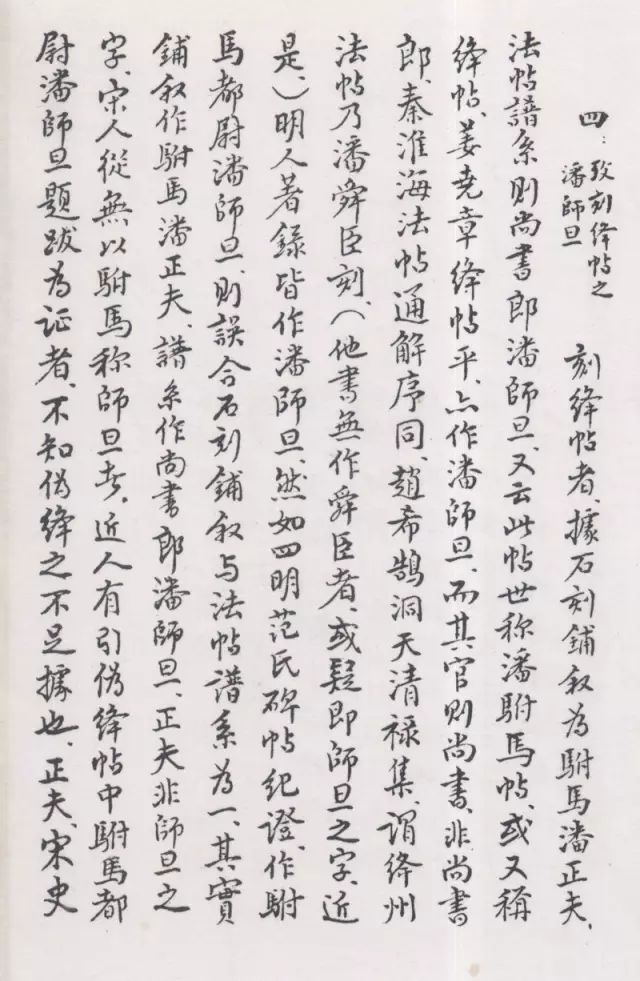 四、攷刻絳帖之
潘師旦
刻絳帖者、據石刻鋪敘為駙馬潘正夫、
法帖譜系則尚書郎潘師旦、又云此帖世称潘駙馬帖、或又稱
絳帖、姜堯章絳帖平、亦作潘師旦、而其官則尚書、非尚書
郎、秦淮海法帖通解序同、趙希鵠洞天清祿集、謂絳州
法帖乃潘舜臣刻、（他書無作舜臣者、或疑即師旦之字、近
是、）明人著錄皆作潘師旦、然如四明范氏碑帖紀證、作駙
馬都尉潘師旦、則誤合石刻鋪敘与法帖譜系為一、其實
鋪敘作駙馬潘正夫、譜系作尚書郎潘師旦、正夫非師旦之
字、宋人從無以駙馬称師旦者、近人有引偽絳帖中駙馬都
尉潘師旦題跋為证者、不知偽絳之不足據也、正夫、宋史